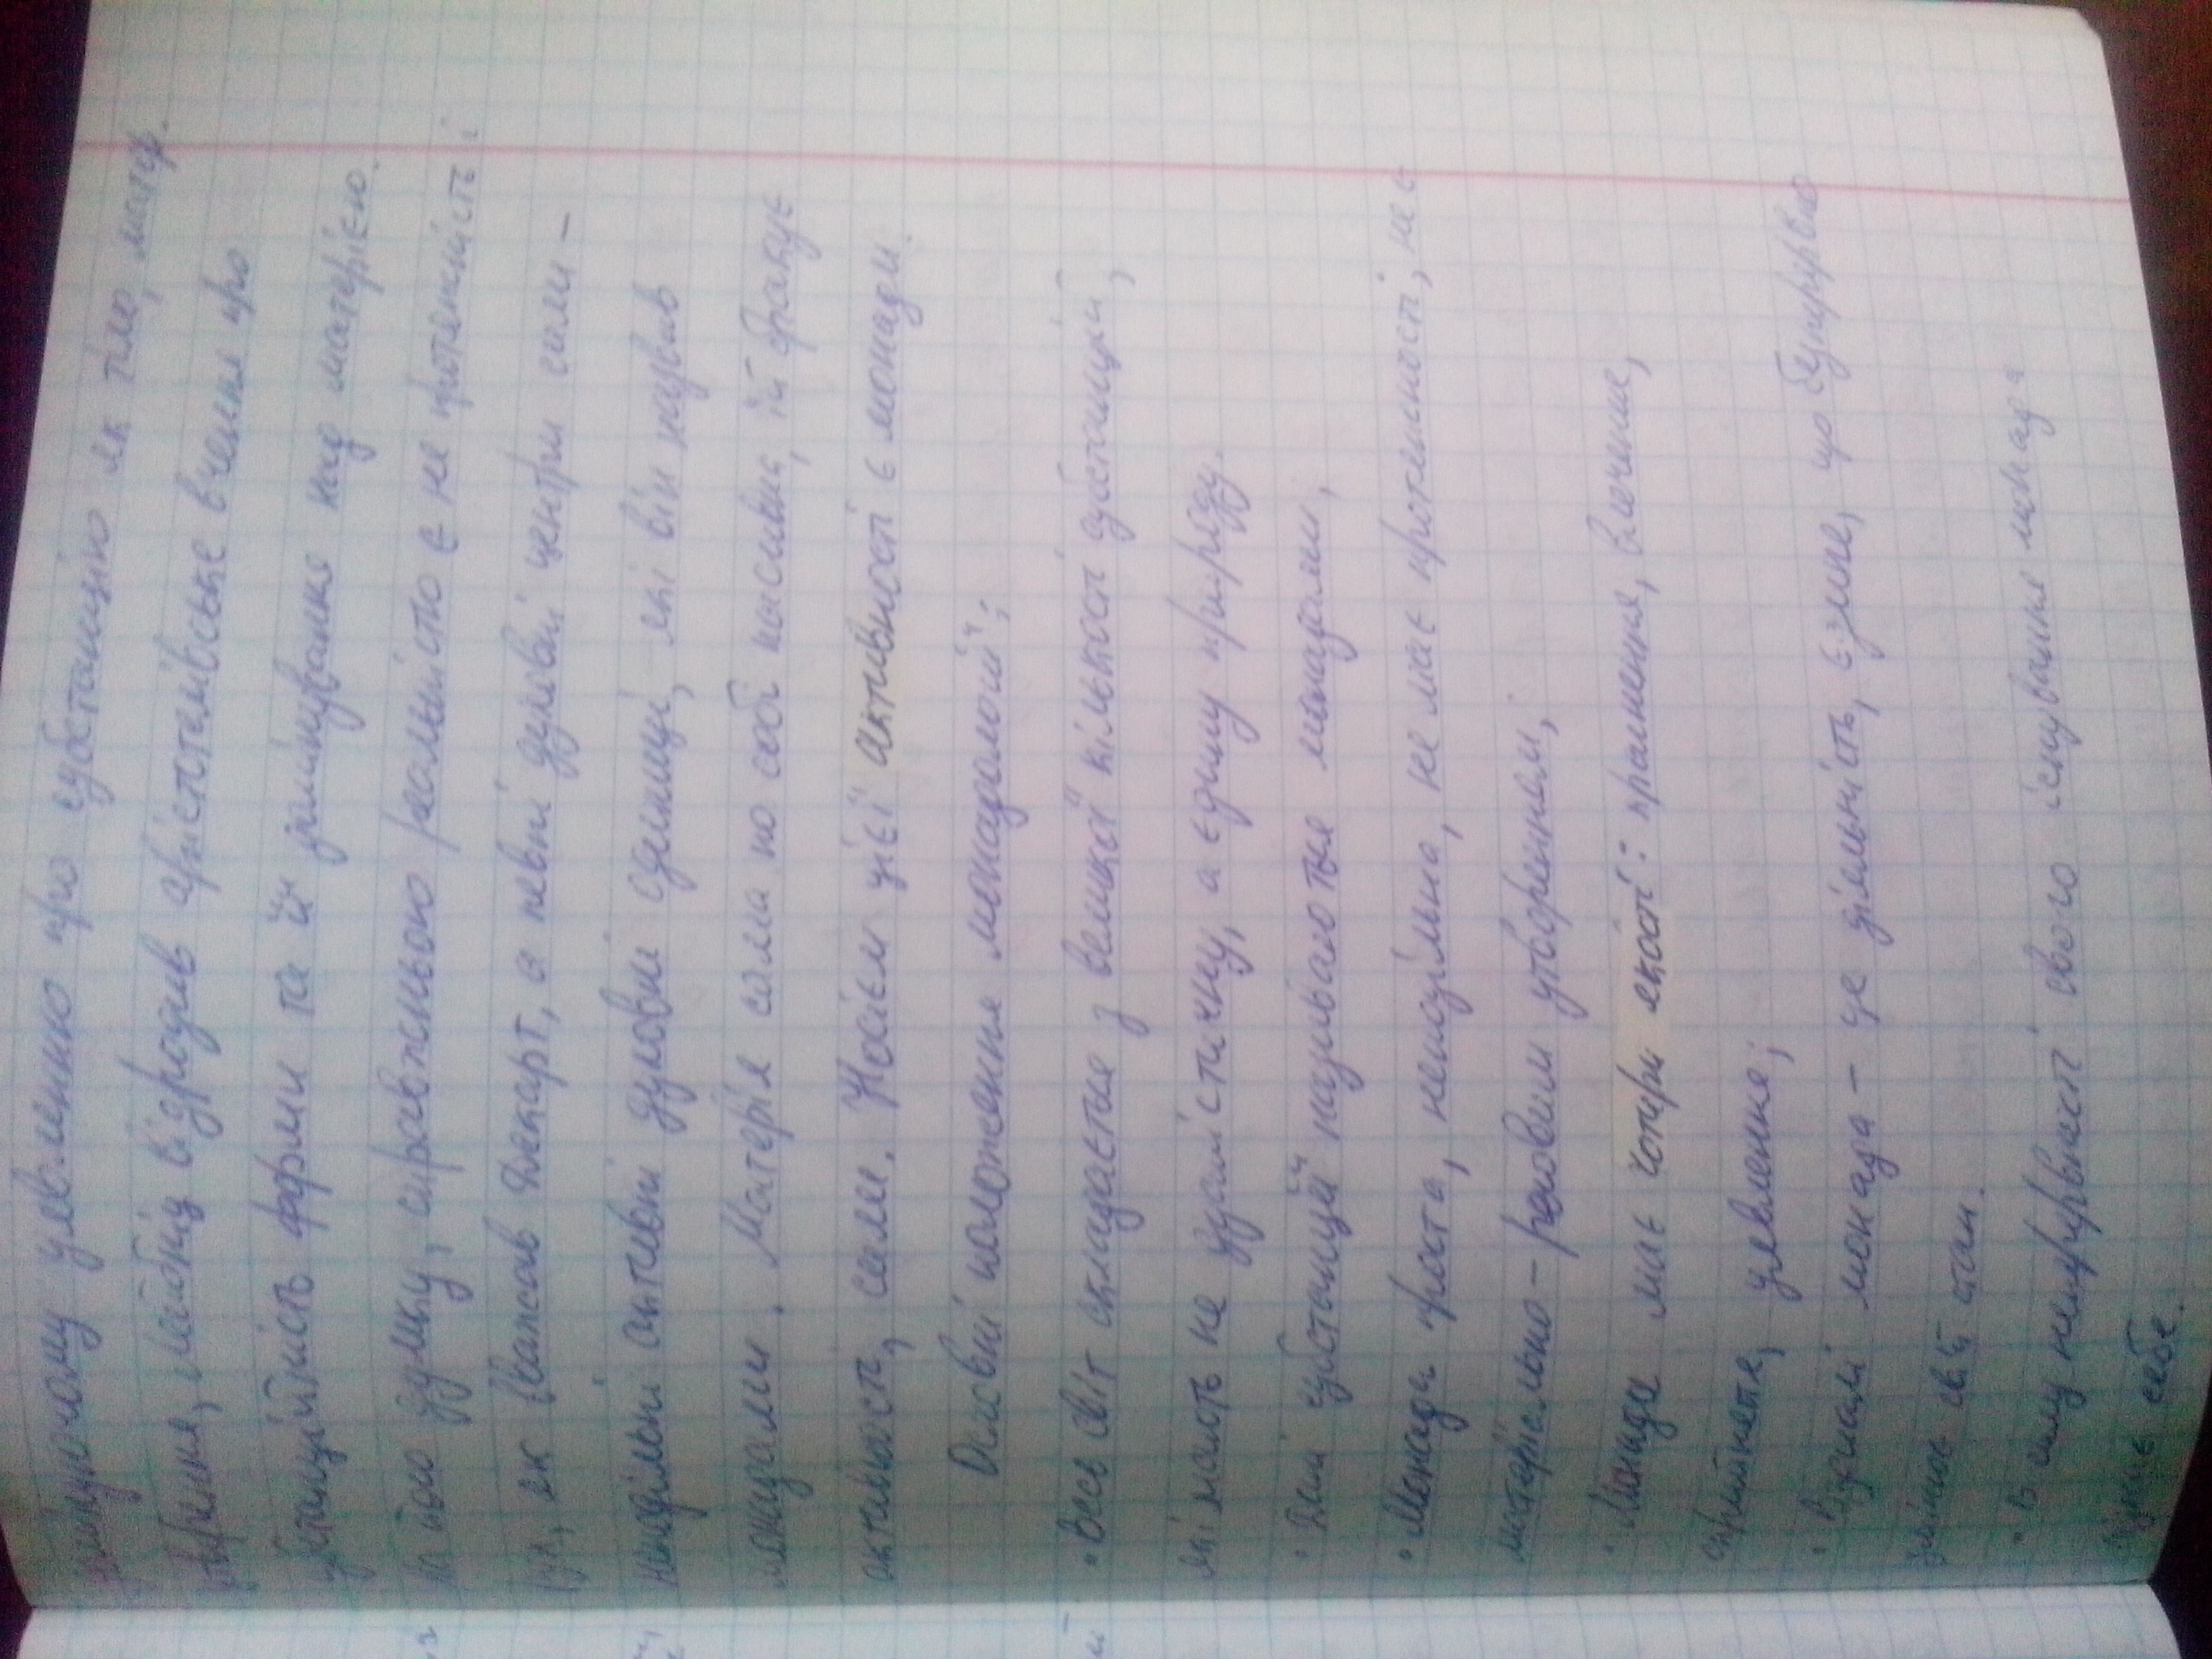 домінуючому уявленню про субстанцію як тіло, матер.
утворення, Лейбніц відродив арістотелівське вчення про
субстанційність форми та її домінування над матерією.
На його думку, справжньою реальністю є не протяжність і
рух, як вважав Декарт, а певні духовні центри сили –
неподільні активні духовні одиниці, які він назвав
монадами. Матерія сама по собі пасивна, їй бракує
активності, сили. Носієм цієї активності є монади.
Основні положення монадології:
• Весь світ складається з великої кількості субстанцій,
які мають не дуалістичну, а єдину природу.
• Дані субстанції називаються монадами;
• Монада проста, неподільна, не має протяжності, не є
матеріально – речовим утворенням;
• Монада має чотири якості: прагнення, влечение,
сприйняття, уявлення;
• В ідеалі монада – це діяльність, єдине, що безперервно
змінює свій стан.
• В силу неперервності свого існування монада
пізнає себе.